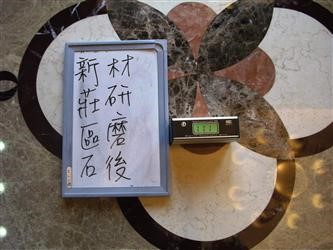 新莊區石
材研磨後